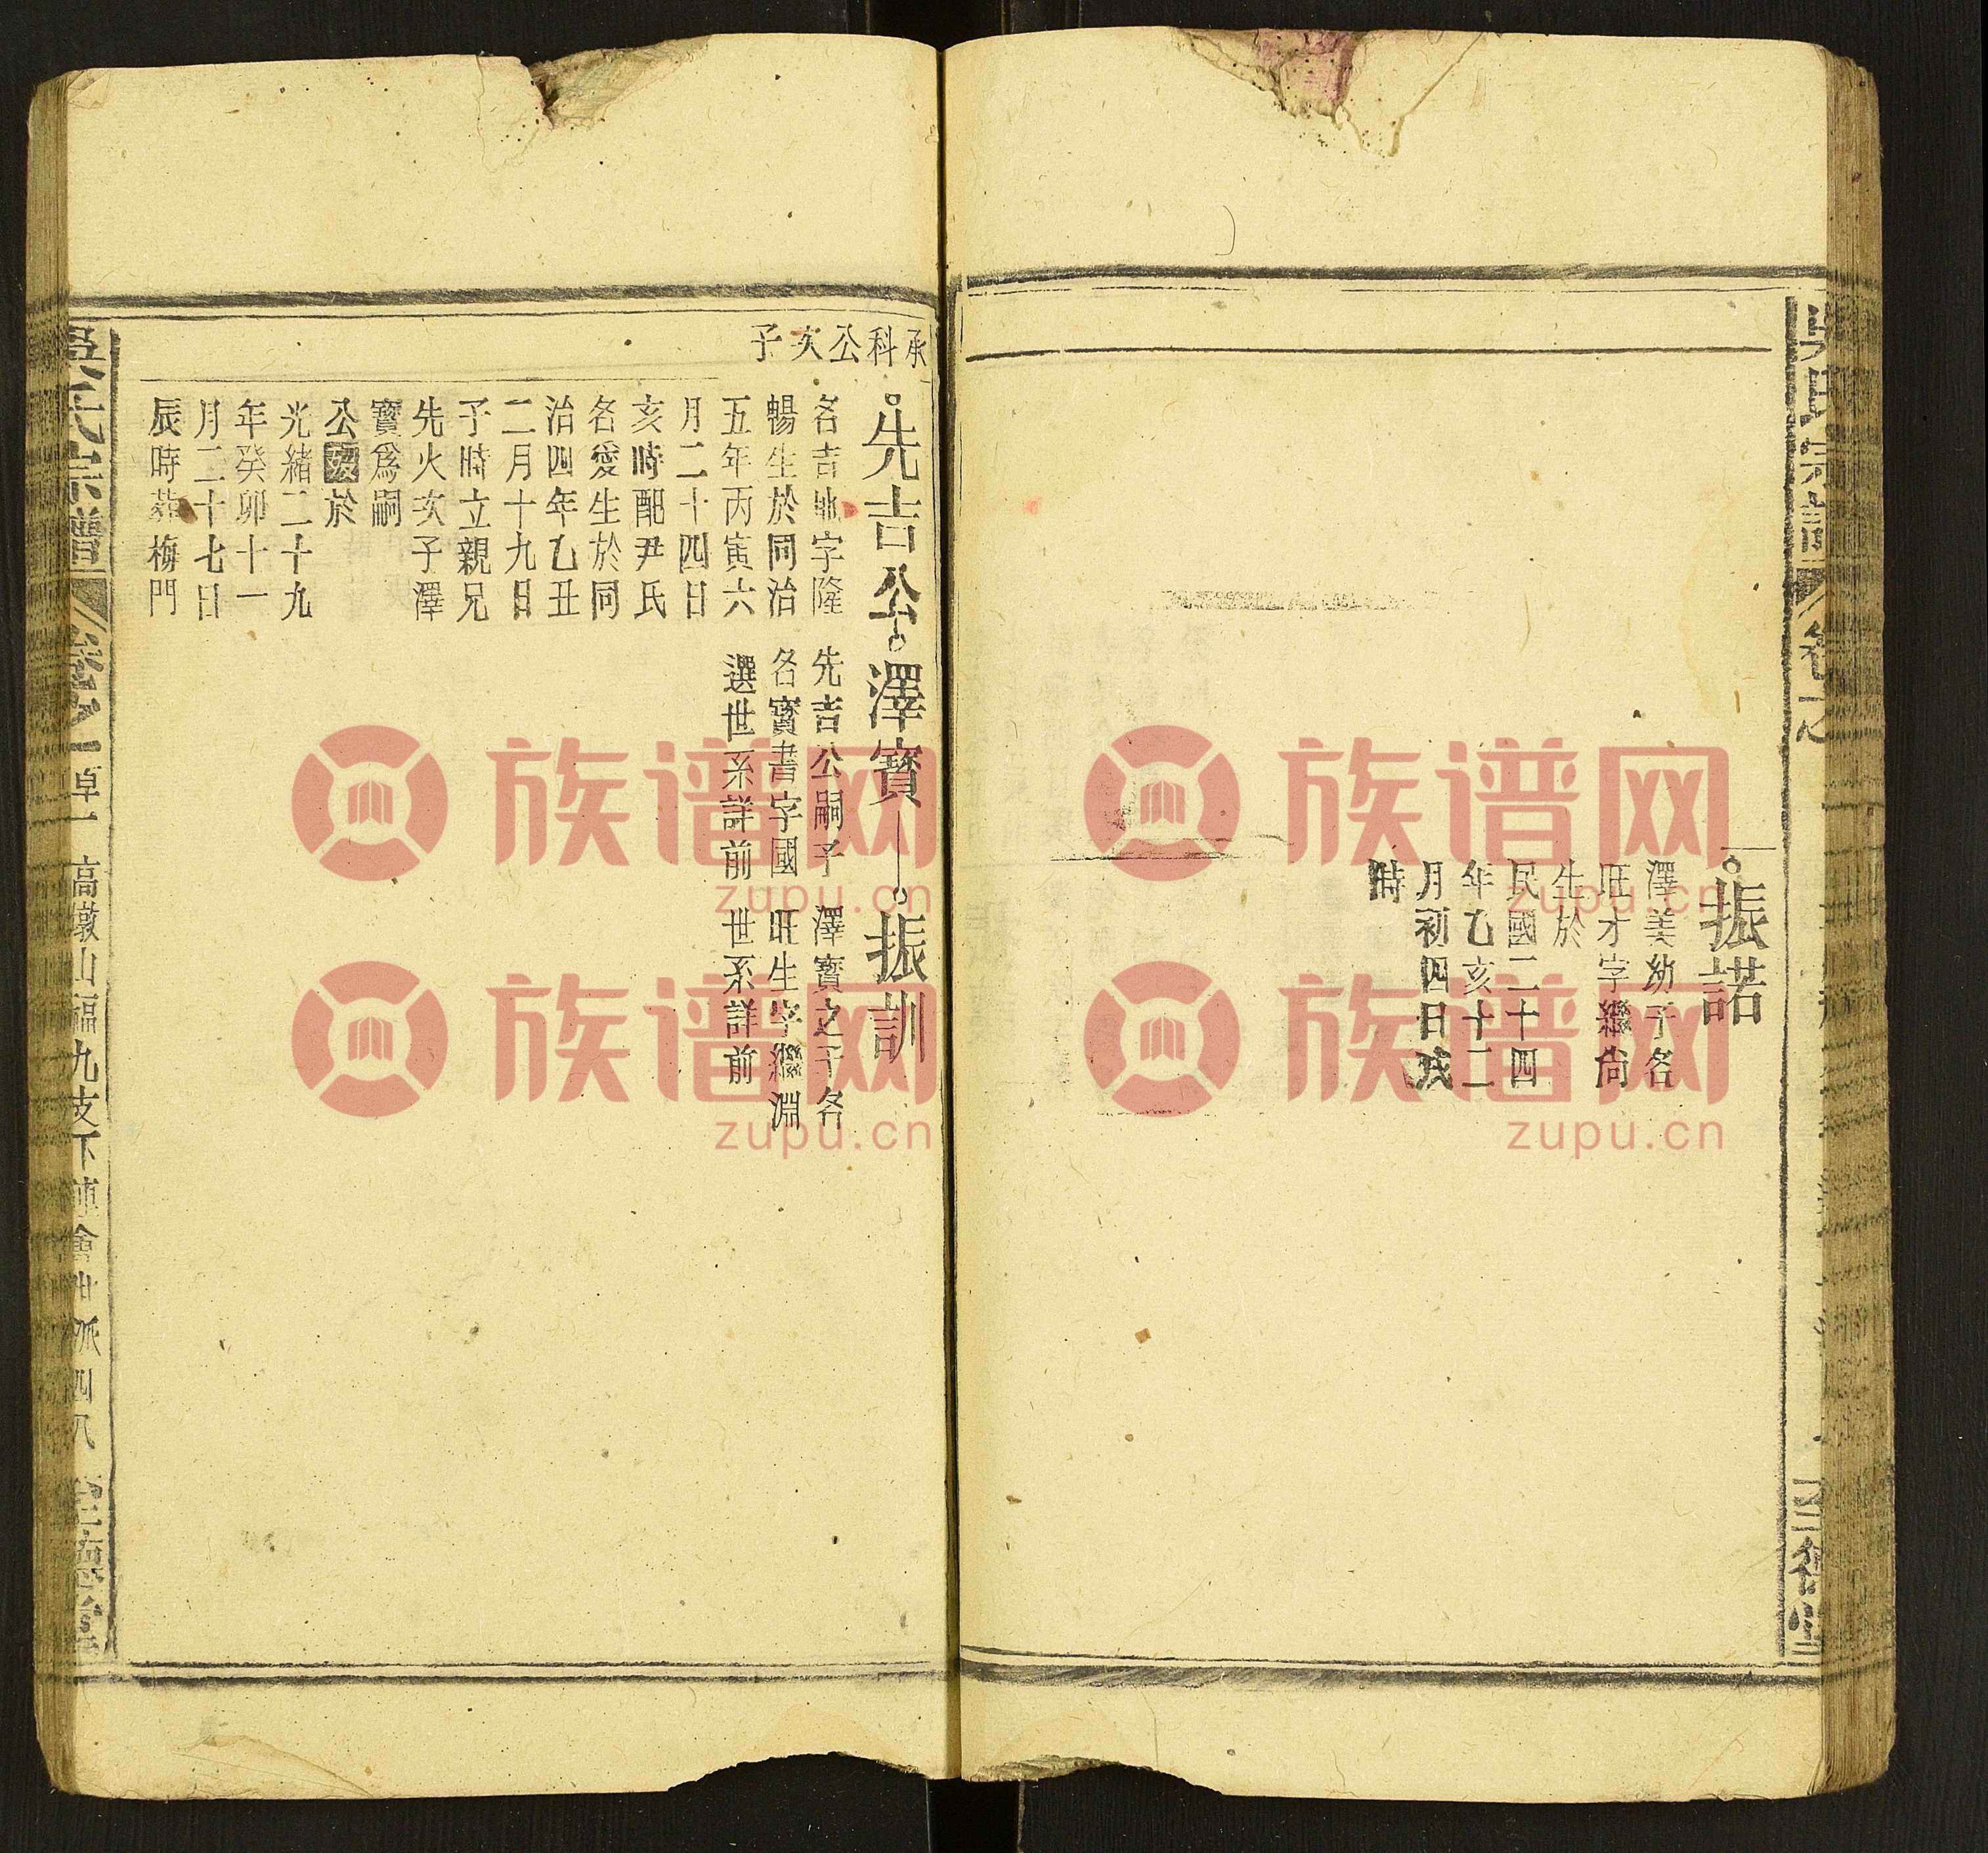 振諾
澤美幼子名
旺才字繼尚
生於
民國二十四
年乙亥十二
月初四日戌
時
承科公次子
先吉公
名吉地字隆
暢生於同治
五年丙寅六
月二十四日
亥時配尹氏
名愛生於同
治四年乙丑
二月十九日
子時立親兄
先火次子澤
寶爲嗣
公歿於
光緒二十九
年癸卯十一
月二十七日
辰時葬梅門
澤寶
先吉公嗣子
名寶書字國
選世系詳前
振訓
澤寶之子名
旺生字繼淵
世系詳前
吳氏宗譜
卷之一
高墩山福九支下
會世派四八
族谱网
zupu.cn
族谱网
zupu.cn
族谱网
zupu.cn
族谱网
zupu.cn